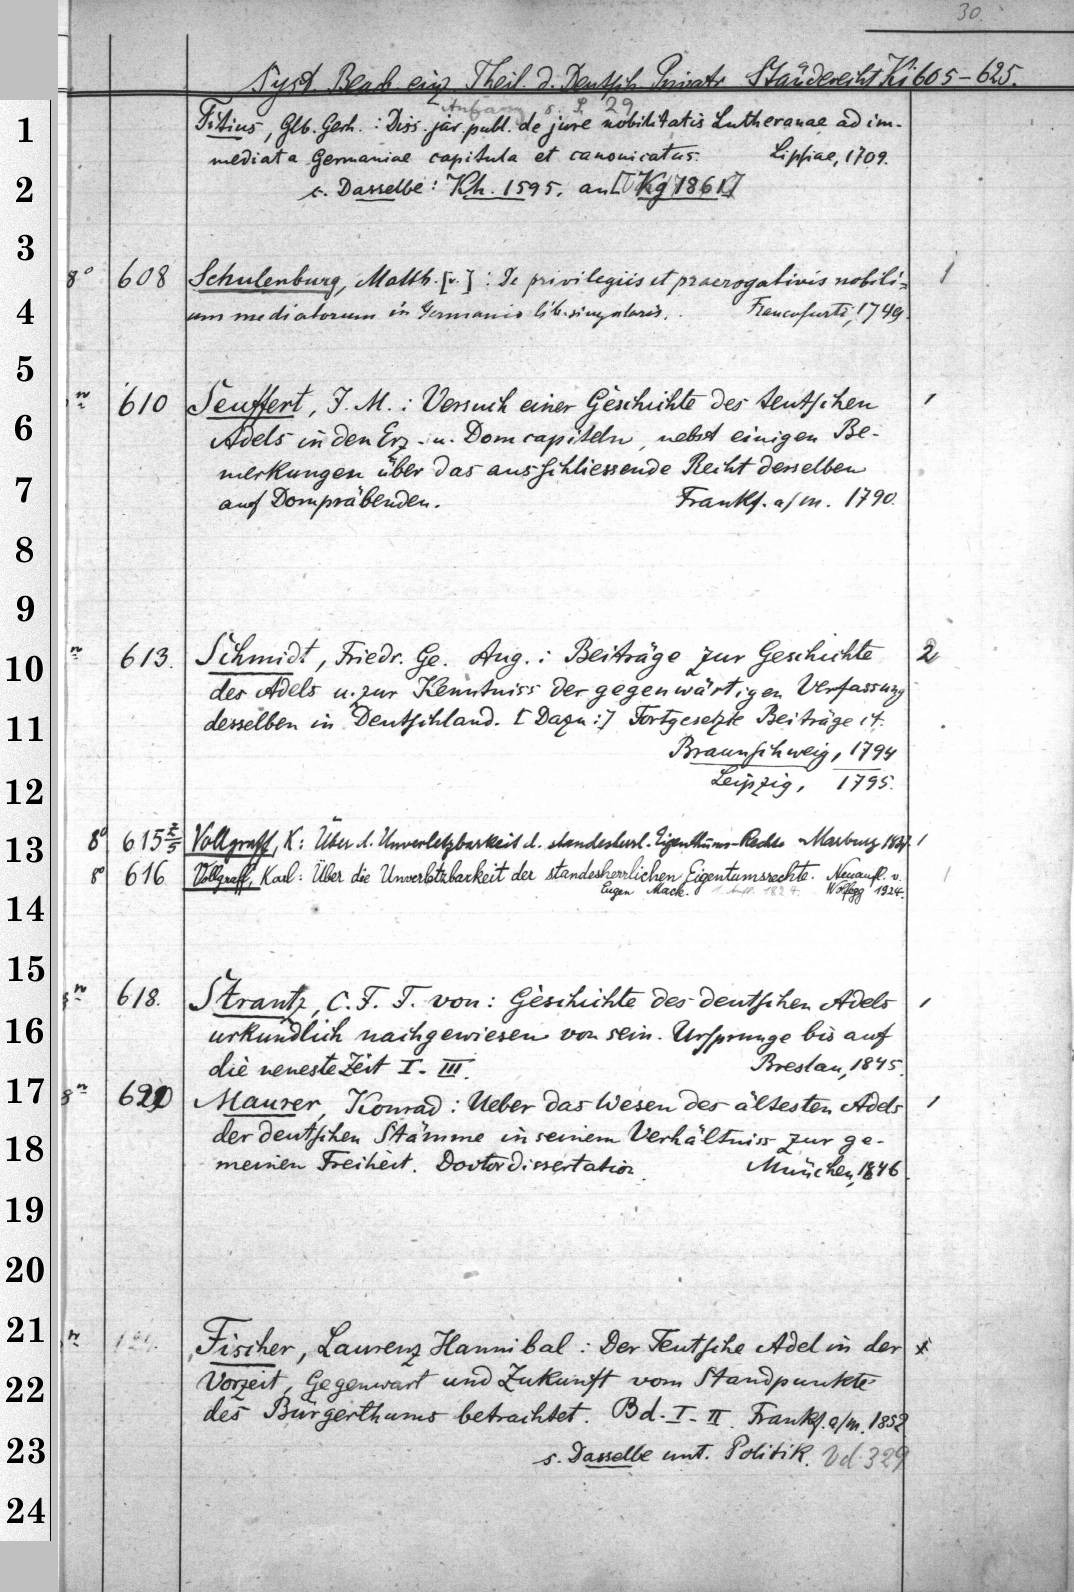 30.
Syst. Bearb. einz. Theil. d. Deutsch. Privatr. Ständerecht Ki 605-625.
Anfang s. S. 29
1
Titius, Glb. Gerh.: Diss. jur. publ. de jure nobilitatis Lutheranae ad im-
mediata Germaniae capitula et canonicatus. Lipsiae, 1709.
2
s. Dasselbe: Kh. 1595. an [Kg 1861]
3
8° 608 Schulenburg, Matth. [v.]: De privilegiis et praerogativis nobili- 1
4
um mediatorum in Germania lib. singularis. Francofurti, 1749.
5
610 Seuffert, J. M.: Versuch einer Geschichte des teutschen 1
6
Adels in den Erz- u. Domcapiteln, nebst einigen Be-
merkungen über das ausschliessende Recht derselben
7
auf Dompräbenden. Frankf. a/m. 1790.
8
9
10
613. Schmidt, Friedr. Ge. Aug.: Beiträge zur Geschichte 2
des Adels u. zur Kenntniss der gegenwärtigen Verfassung
11
desselben in Deutschland. [Dazu:] Fortgesetzte Beiträge etc.
Braunschweig, 1794
12
Leipzig, 1795.
13
8° 615 Vollgraff, K: Über d. Unverletzbarkeit d. standesherrl. Eigenthums-Rechte Marburg 1
8° 616 Vollgraff, Karl: Über die Unverletzbarkeit der standesherrlichen Eigentumsrechte. Neuaufl. v.
Eugen Mack. Wolfegg 1924.
14
15
618. Strantz, C. F. F. von: Geschichte des deutschen Adels 1
16
urkundlich nachgewiesen von sein. Ursprunge bis auf
die neueste Zeit I-III. Breslau, 1845.
17
8 620 Maurer, Konrad: Ueber das Wesen des ältesten Adels 1
18
der deutschen Stämme in seinem Verhältniss zur ge-
meinen Freiheit. Doctordissertation. München, 1846.
19
20
21
Fischer, Laurenz Hannibal: Der Teutsche Adel in der
22
Vorzeit, Gegenwart und Zukunft vom Standpunkte
des Bürgerthums betrachtet. Bd. I-II. Frankf. a/m. 1852
23
s. Dasselbe unt. Politik. Vd 329
24